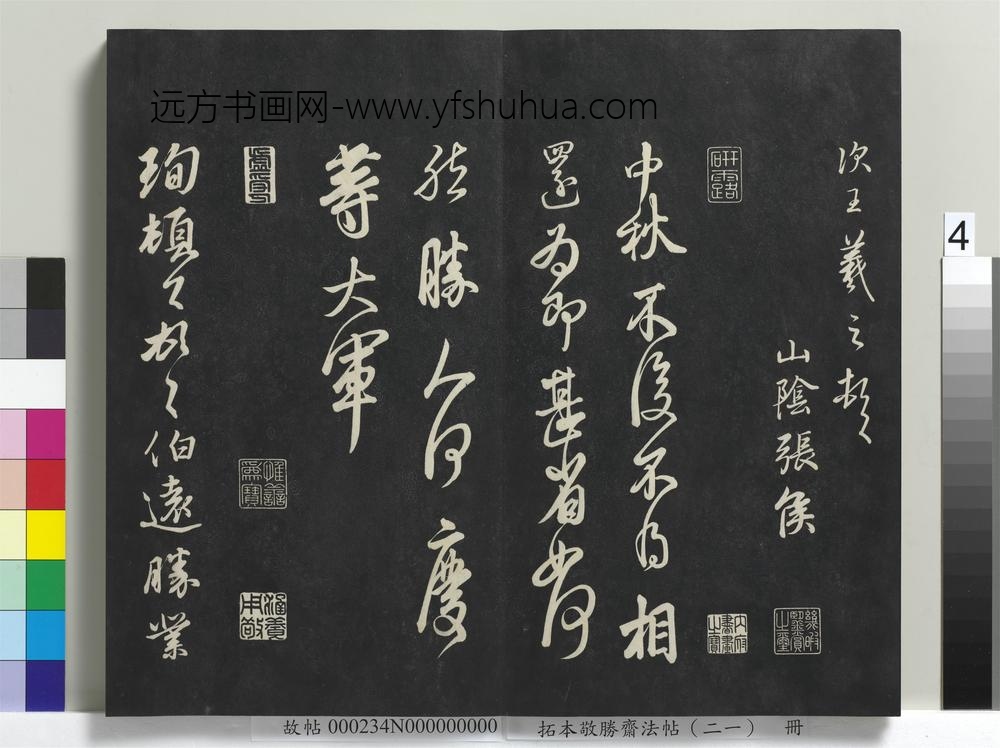 远方书画网-www.yfshuhua.com
次王羲之頓々
山陰張侯
中秋不復不得相
還爲即甚省如何
然勝人何慶
等大軍
珣頓々首々伯遠勝業
4
故帖 000234N000000000
拓本敬勝齋法帖（二一） 冊